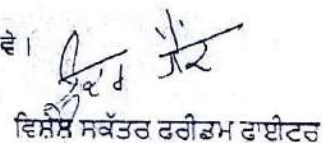 ਵੇ।
ਵਿਸ਼ੇਸ਼ ਸਕੱਤਰ ਫਰੀਡਮ ਫਾਈਟਰ